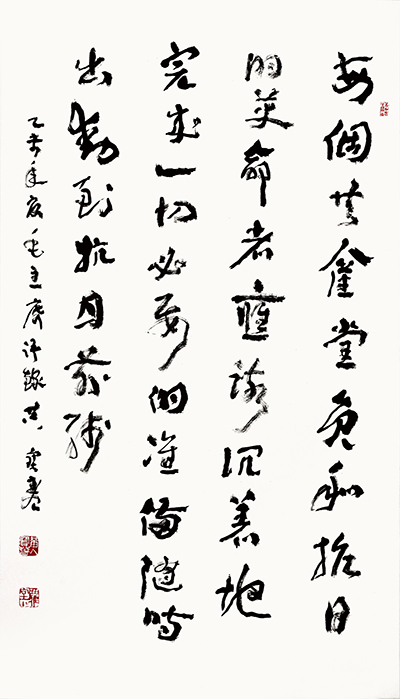 每個共產黨員和抗日
的革命者應該沉着地
完成一切必要的準備隨時
出動到抗日前綫
乙未年夏毛主席語録